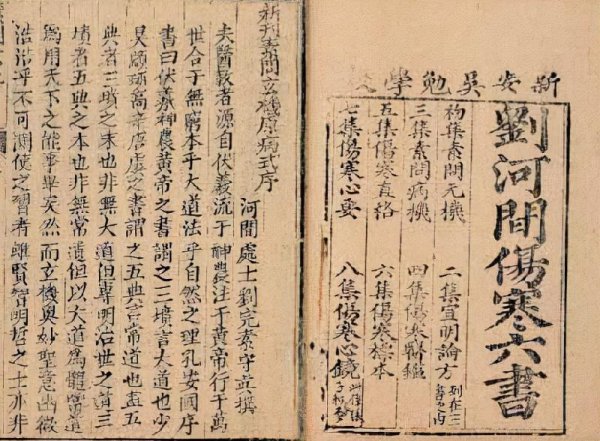 新安吳勉學
劉河間傷寒六書
初集素問元機 二集宣明論方 列在三書之內
三集素問病機 四集傷寒醫鑑
五集傷寒直格 六集傷寒標本
七集傷寒心要 八集傷寒心鏡
新刊素問玄機原病式序
河間處士劉完素守真撰
夫醫教者源自伏羲流于神農注于黃帝行于萬
世合于無窮本乎大道法乎自然之理孔安國序
書曰伏羲神農黃帝之書謂之三墳言大道也少
昊顓頊高辛唐虞之書謂之五典言常道也盖五
典者三墳之末也非無大道但專明治世之道三
墳者五典之本也非無常道但以大道為體常道
為用天下之能事畢矣然而玄機奧妙聖意幽微
浩浩乎不可測使之習者雖賢智明哲之士亦非